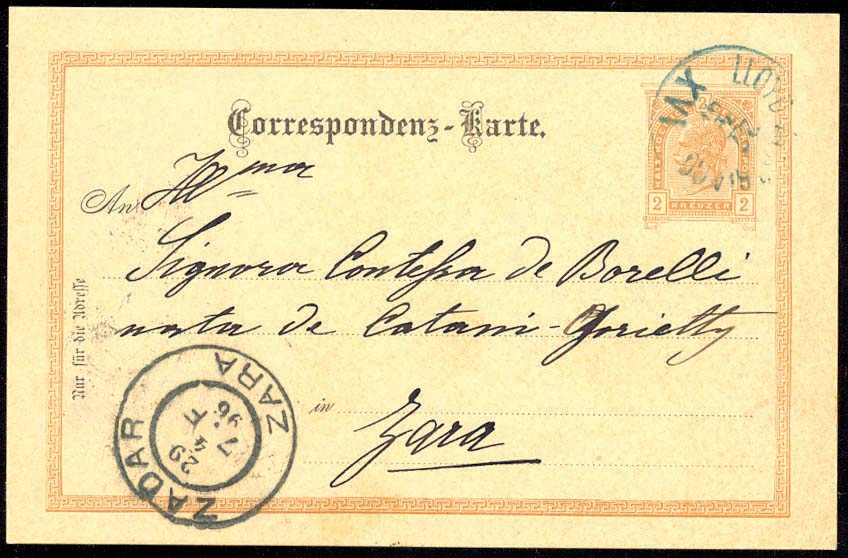 Correspondenz-Karte.
2 KREUZER 2
LLOYD
XVI
An Illma
Signora Contessa de Borelli
nata de Catani-Gorietty
in Zara
Nur für die Adresse
ZADAR ZARA
29 4
7 F
96